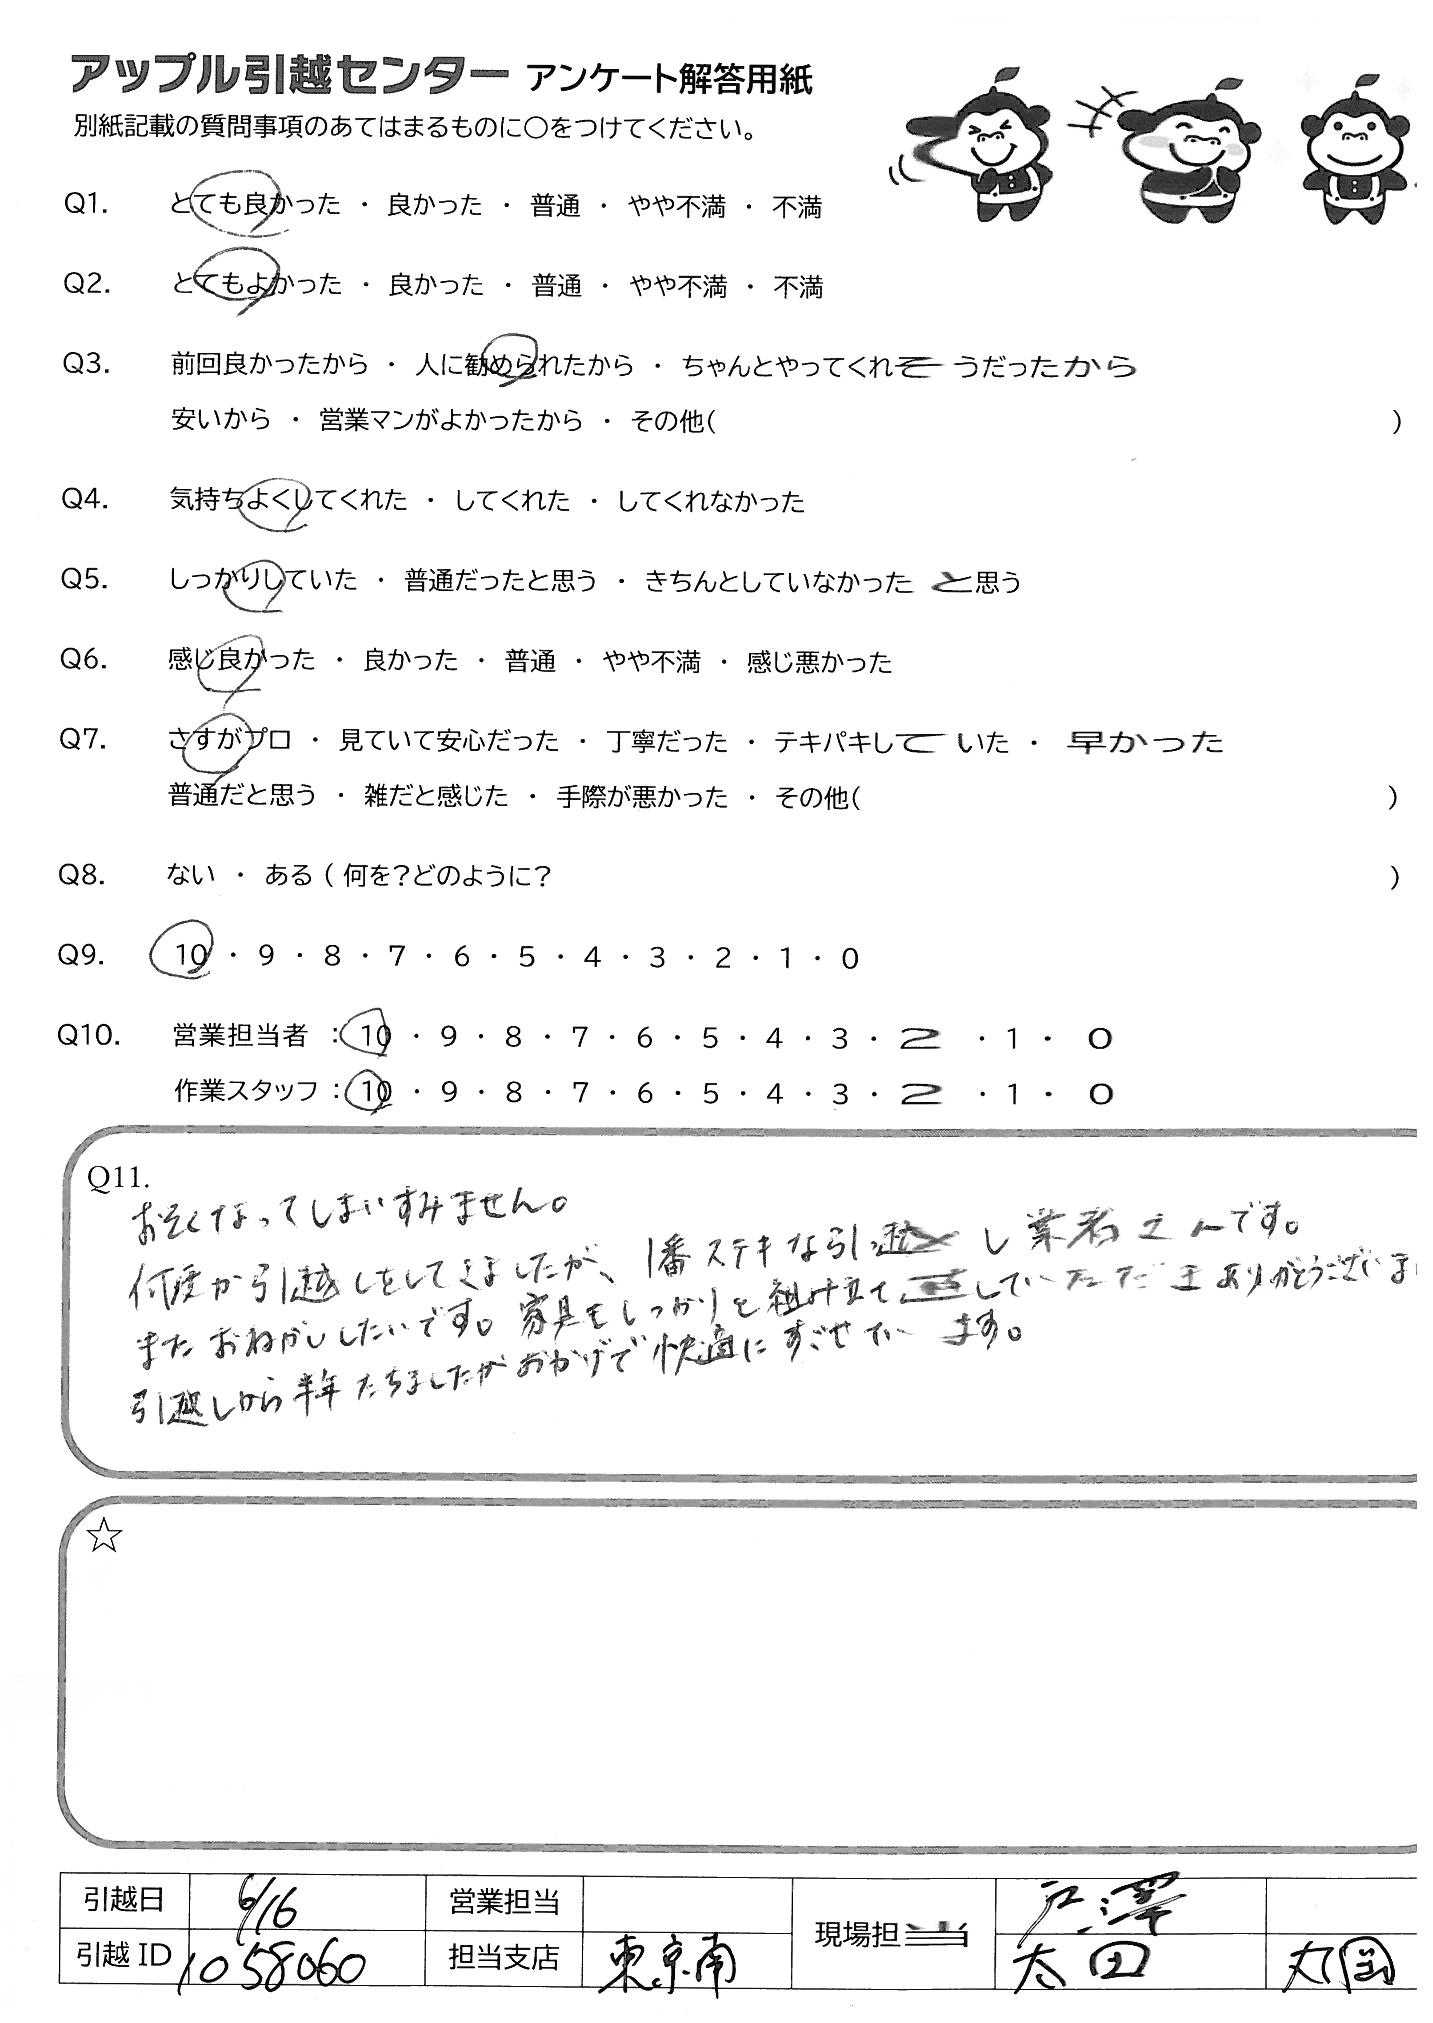 アップル引越センター アンケート解答用紙
別紙記載の質問事項のあてはまるものに○をつけてください。
Q1. とても良かった ・ 良かった ・ 普通 ・ やや不満 ・ 不満
Q2. とてもよかった ・ 良かった ・ 普通 ・ やや不満 ・ 不満
Q3. 前回良かったから ・ 人に勧められたから ・ ちゃんとやってくれそうだったから
安いから ・ 営業マンがよかったから ・ その他( )
Q4. 気持ちよくしてくれた ・ してくれた ・ してくれなかった
Q5. しっかりしていた ・ 普通だったと思う ・ きちんとしていなかったと思う
Q6. 感じ良かった ・ 良かった ・ 普通 ・ やや不満 ・ 感じ悪かった
Q7. さすがプロ ・ 見ていて安心だった ・ 丁寧だった ・ テキパキしていた ・ 早かった
普通だと思う ・ 雑だと感じた ・ 手際が悪かった ・ その他( )
Q8. ない ・ ある ( 何を?どのように? )
Q9. 10 ・ 9 ・ 8 ・ 7 ・ 6 ・ 5 ・ 4 ・ 3 ・ 2 ・ 1 ・ 0
Q10. 営業担当者 : 10 ・ 9 ・ 8 ・ 7 ・ 6 ・ 5 ・ 4 ・ 3 ・ 2 ・ 1 ・ 0
作業スタッフ : 10 ・ 9 ・ 8 ・ 7 ・ 6 ・ 5 ・ 4 ・ 3 ・ 2 ・ 1 ・ 0
Q11.
おそくなってしまいすみません。
何度か引越しをしてきましたが、1番ステキな引越し業者さんです。
またおねがいしたいです。家具もしっかりと組み立て直していただきありがとうございま
引越しから半年たちましたがおかげで快適にすごせています。
☆
引越日 6/16 営業担当 現場担当 戸澤
引越ID 1058060 担当支店 東京南 太田 丸岡